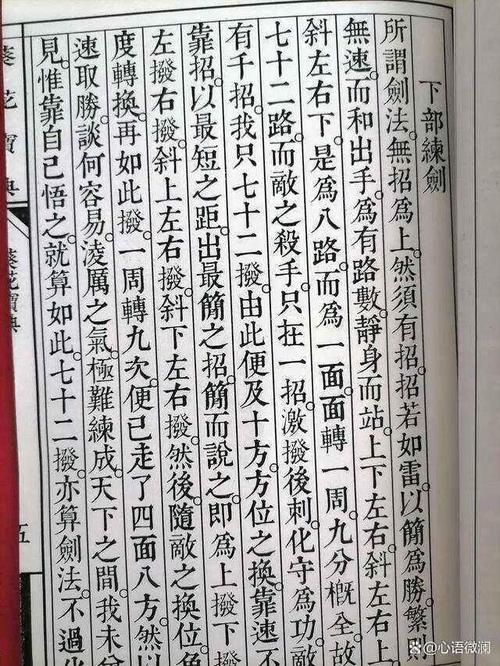 下部練劍
所謂劍法。無招爲上。然須有招。招若如雷。以簡爲勝。繁則
無速。而和出手。爲有路數。靜身而站。上下左右。斜左右上。
斜左右下。是爲八路。而爲一面。面轉一周。九分概全。故
七十二路。而敵之殺手。只在一招。激撥後刺。化守爲功。敵
有千招。我只七十二撥。由此便及十方。方位之換。靠速不
靠招。以最短之距。出最簡之招。簡而說之。即爲上撥下撥
左撥右撥。斜上左右撥。斜下左右撥。然後隨敵之
度轉換。再如此撥。一周轉九次。便已走了四面八方。然
速取勝。談何容易。淩厲之氣。極難練成。天下之間。我未曾
見。惟靠自己悟之。就算如此。七十二撥。亦算劍法。不過
葵花寶典
葵花寶典
五
@心语微澜